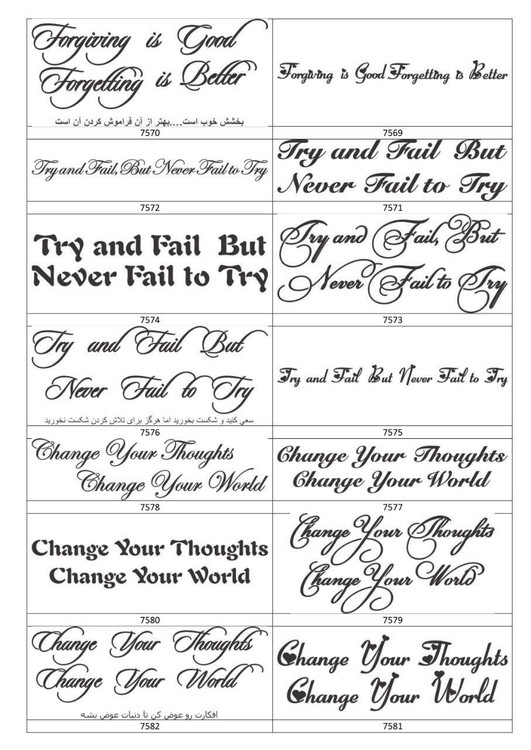 Forgiving is Good
Forgetting is Better
بخشش خوب است....بهتر از آن فراموش کردن آن است
7570
Forgiving is Good Forgetting is Better
7569
Try and Fail, But Never Fail to Try
7572
Try and Fail But
Never Fail to Try
7571
Try and Fail But
Never Fail to Try
7574
Try and Fail, But
Never Fail to Try
7573
Try and Fail But
Never Fail to Try
سعی کنید و شکست بخورید اما هرگز برای تلاش کردن شکست نخورید
7576
Try and Fail But Never Fail to Try
7575
Change Your Thoughts
Change Your World
7578
Change Your Thoughts
Change Your World
7577
Change Your Thoughts
Change Your World
7580
Change Your Thoughts
Change Your World
7579
Change Your Thoughts
Change Your World
افکارت رو عوض کن تا دنیات عوض بشه
7582
Change Your Thoughts
Change Your World
7581